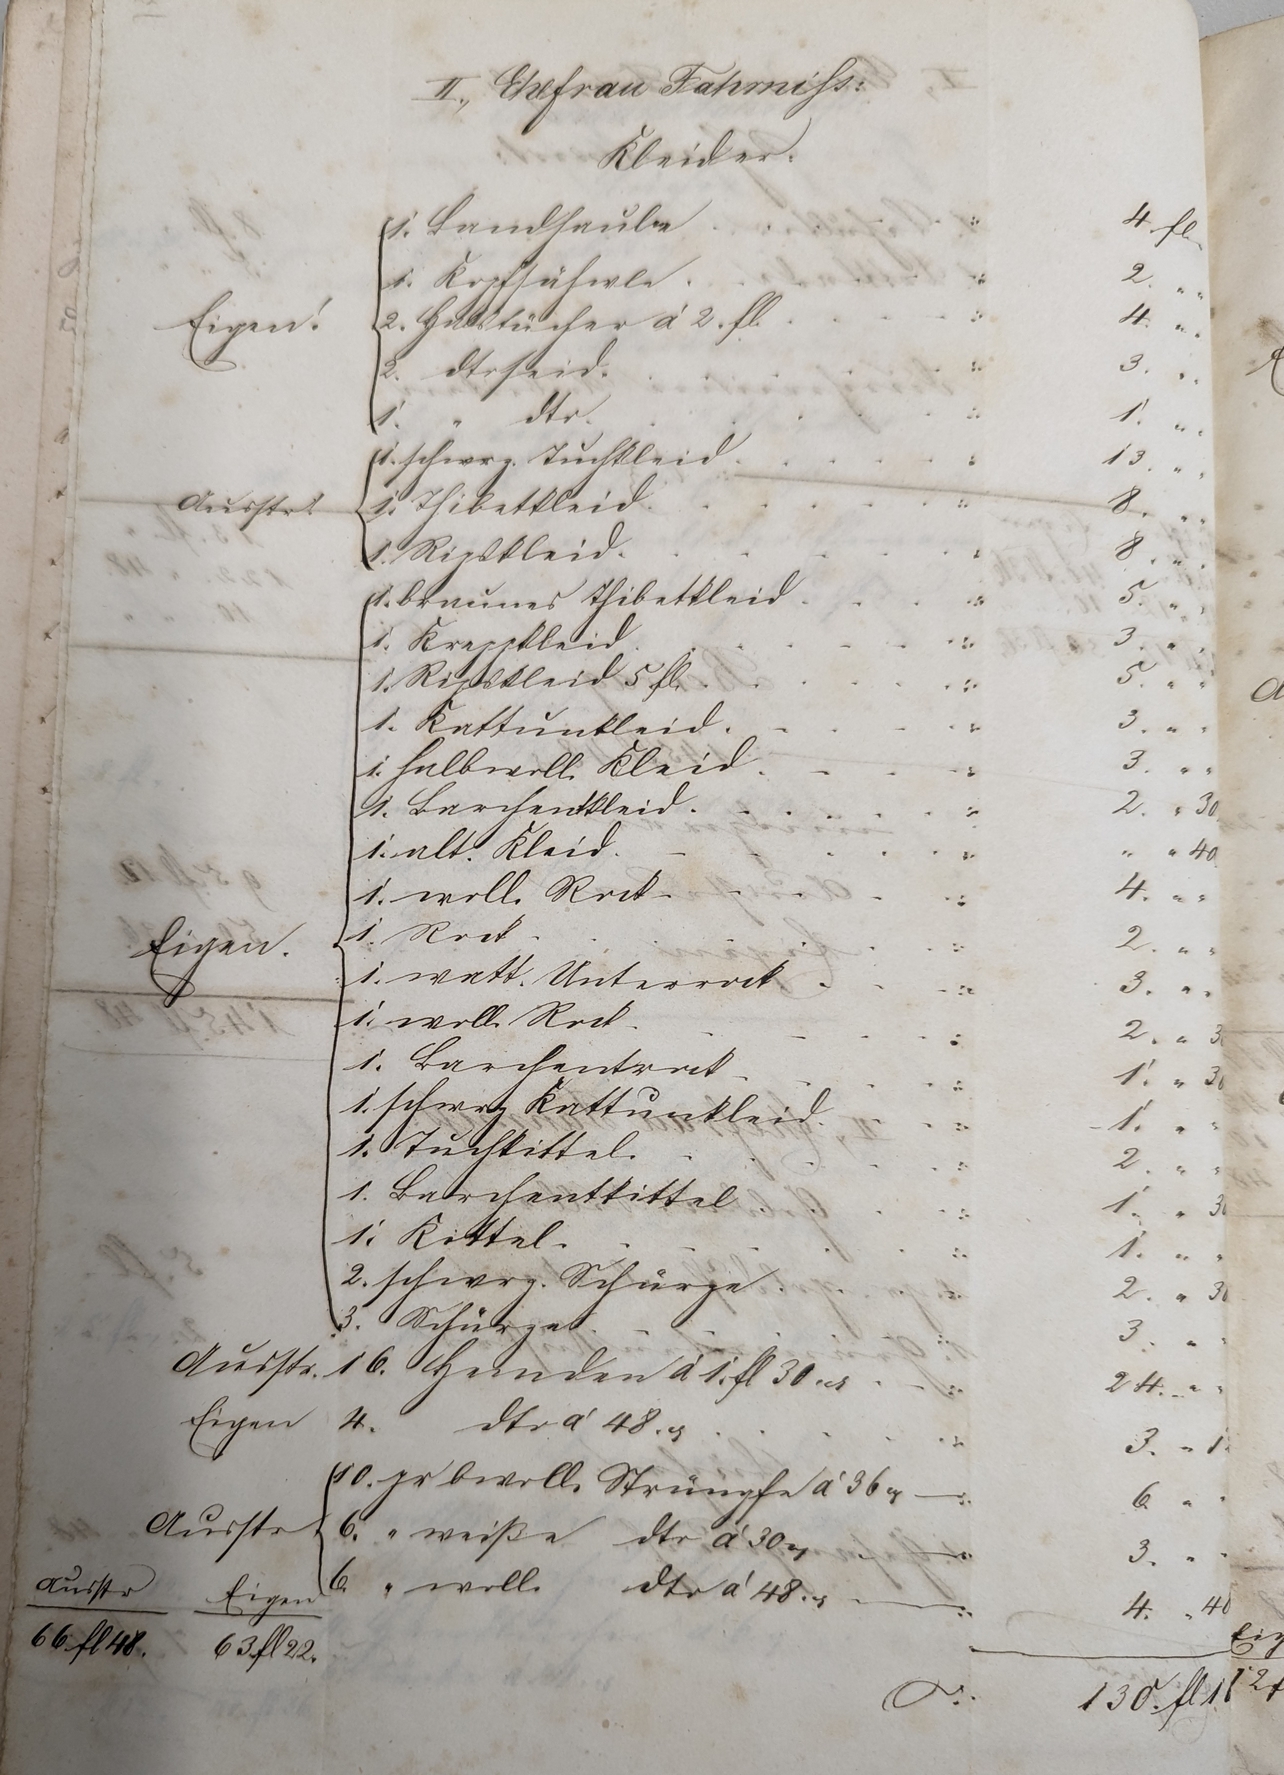 II., Ehefrau Fahrniß:
Kleider.
1. Bandhaube 4. fl.
1. 2. „ „
Eigen: 2. Halstücher á 2. fl. 4. „ „
2. dto seid. 3. „ „
1. „ dto. 1. „ „
1. schwrz. Tuchkleid 13. „ „
Ausstr. 1. Thibetkleid. 8. „ „
1. Ripskleid. 8. „ „
1. braunes Thibetkleid. 5. „ „
1. Kreppkleid. 3. „ „
1. Ripskleid 5 fl. 5. „ „
1. Kattunkleid. 3. „ „
1. halbwoll. Kleid. 3. „ „
1. Barchentkleid. 2. „ 30
1. alt. Kleid. „ „ 40
1. woll. Rock 4. „ „
Eigen. 1. Rock 2. „ „
1. watt. Unterrock 3. „ „
1. woll. Rock 2. „ 30
1. Barchentrock 1. „ 30
1. schwrz Kattunkleid. 1. „ „
1. Tuchkittel. 2. „ „
1. Barchentkittel. 1. „ 30
1. Kittel. 1. „ „
2. schwrz. Schürze. 2. „ 30
3. Schürze. 3. „ „
Ausstr. 16. Hemden á 1. fl 30. 24. „ „
Eigen 4. dto á 48. 3. „ 12
10. pr bwoll. Strümpfe á 36 6 „ „
Ausstr 6. „ weiße dto á 30 3. „ „
6. „ woll. dto á 48. 4. „ 48
Ausstr Eigen
66 fl 48. 63 fl 22.
130. fl 1